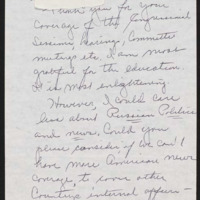 Thank you for your
coverage of the Congressional
Sessions, Hearings, Committee
meetings etc. I am most
grateful for the education.
It is most enlightening
However, I could care
less about Russian Politics
and news. Could you
please consider if we can't
have more American news
coverage to some other
Country's internal affairs—